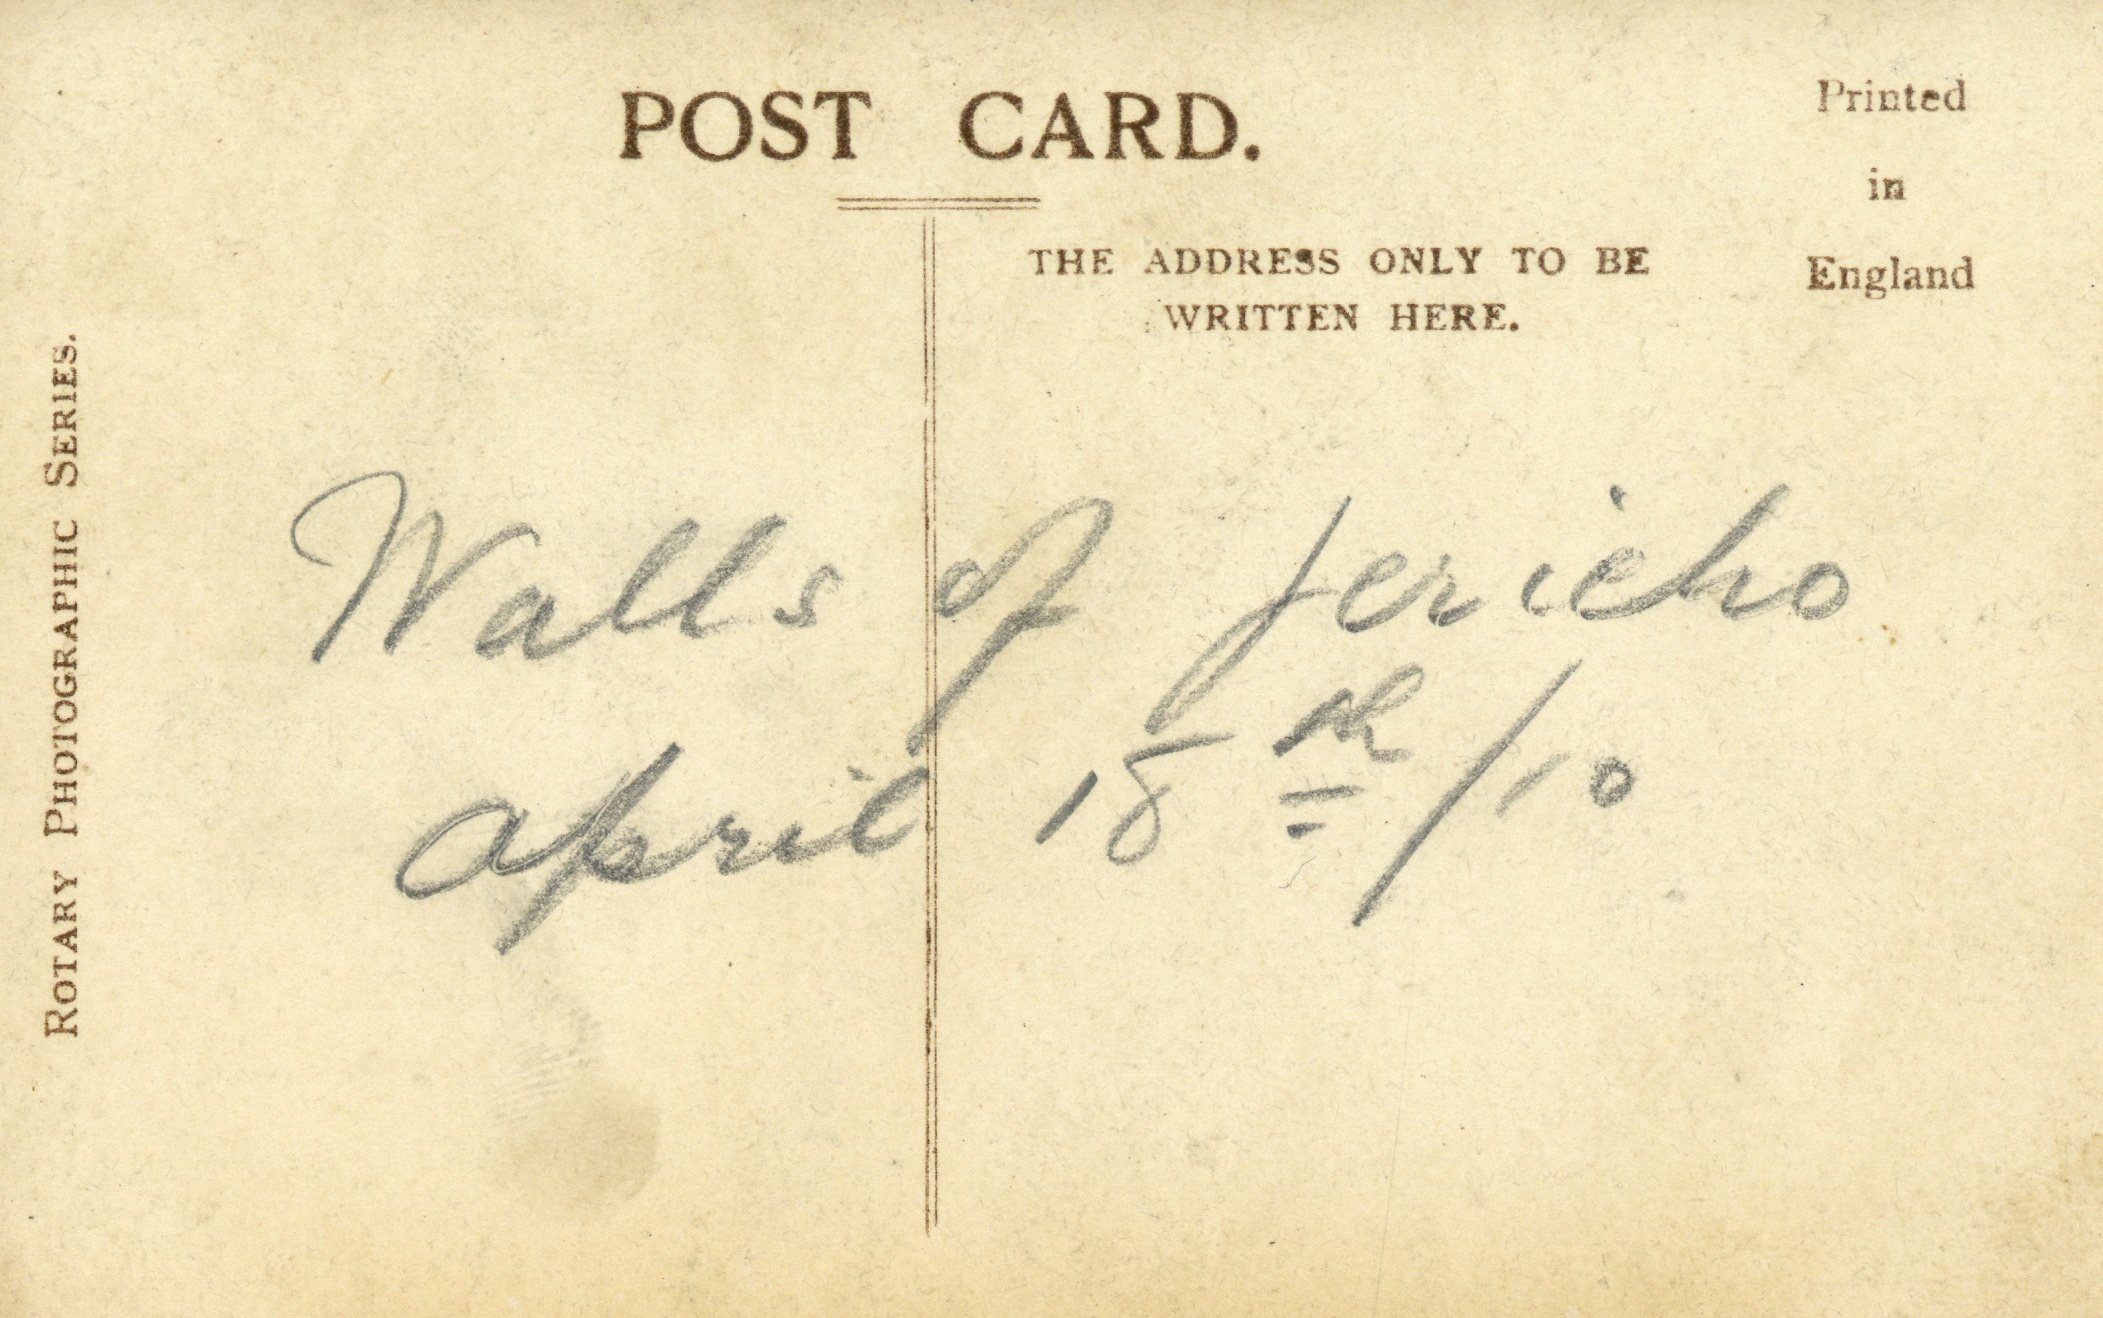 POST CARD.
Printed
in
England
THE ADDRESS ONLY TO BE
WRITTEN HERE.
ROTARY PHOTOGRAPHIC SERIES.
Walls of Jericho
april 18th/10